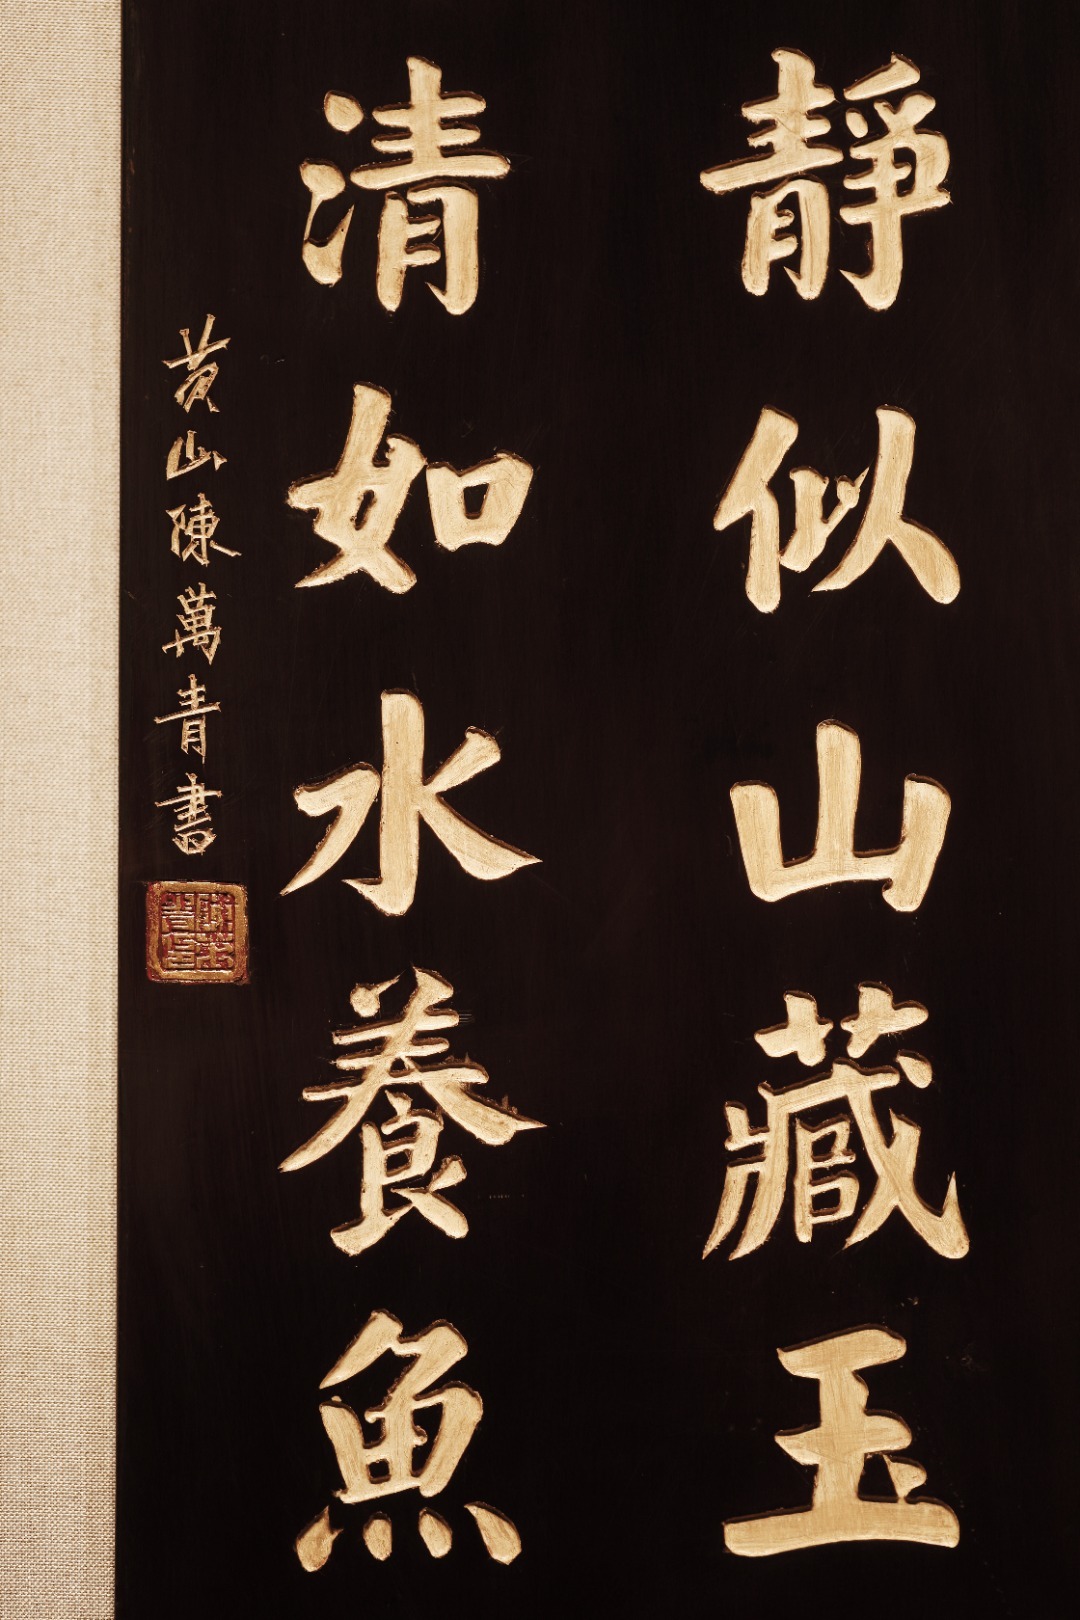 靜似山藏玉
清如水養魚
黃山陳萬青書